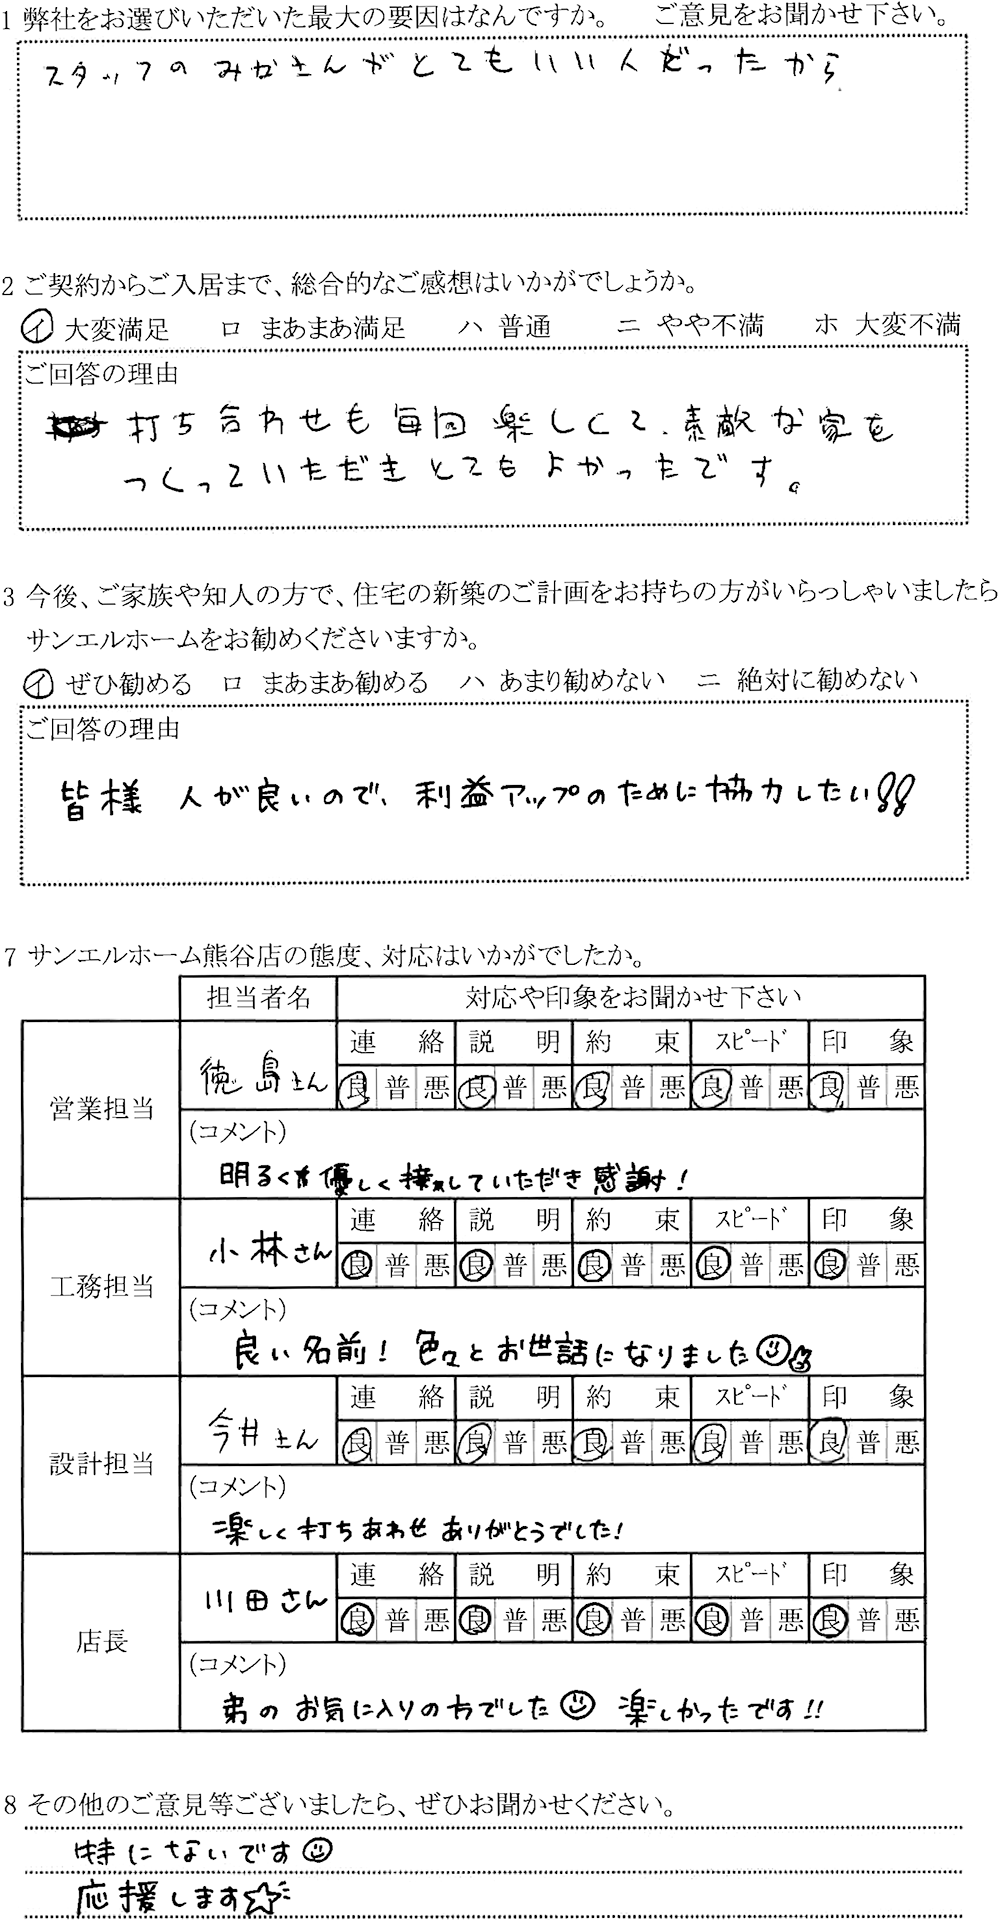 1 弊社をお選びいただいた最大の要因はなんですか。 ご意見をお聞かせ下さい。
スタッフのみなさんがとてもいい人だったから
2 ご契約からご入居まで、総合的なご感想はいかがでしょうか。
イ 大変満足 ロ まあまあ満足 ハ 普通 ニ やや不満 ホ 大変不満
ご回答の理由
打ち合わせも毎回楽しくて、素敵な家を
つくっていただきとてもよかったです。
3 今後、ご家族や知人の方で、住宅の新築のご計画をお持ちの方がいらっしゃいましたら
サンエルホームをお勧めくださいますか。
イ ぜひ勧める ロ まあまあ勧める ハ あまり勧めない ニ 絶対に勧めない
ご回答の理由
皆様 人が良いので、利益アップのために協力したい!!
7 サンエルホーム熊谷店の態度、対応はいかがでしたか。
担当者名 対応や印象をお聞かせ下さい
営業担当 徳島さん 連絡 説明 約束 スピード 印象
良 普 悪 良 普 悪 良 普 悪 良 普 悪 良 普 悪
(コメント)
明るく優しく接していただき感謝!
工務担当 小林さん 連絡 説明 約束 スピード 印象
良 普 悪 良 普 悪 良 普 悪 良 普 悪 良 普 悪
(コメント)
良い名前! 色々とお世話になりました
設計担当 今井さん 連絡 説明 約束 スピード 印象
良 普 悪 良 普 悪 良 普 悪 良 普 悪 良 普 悪
(コメント)
楽しく打ちあわせ ありがとうでした!
店長 川田さん 連絡 説明 約束 スピード 印象
良 普 悪 良 普 悪 良 普 悪 良 普 悪 良 普 悪
(コメント)
弟のお気に入りの方でした 楽しかったです!!
8 その他のご意見等ございましたら、ぜひお聞かせください。
特にないです
応援します☆